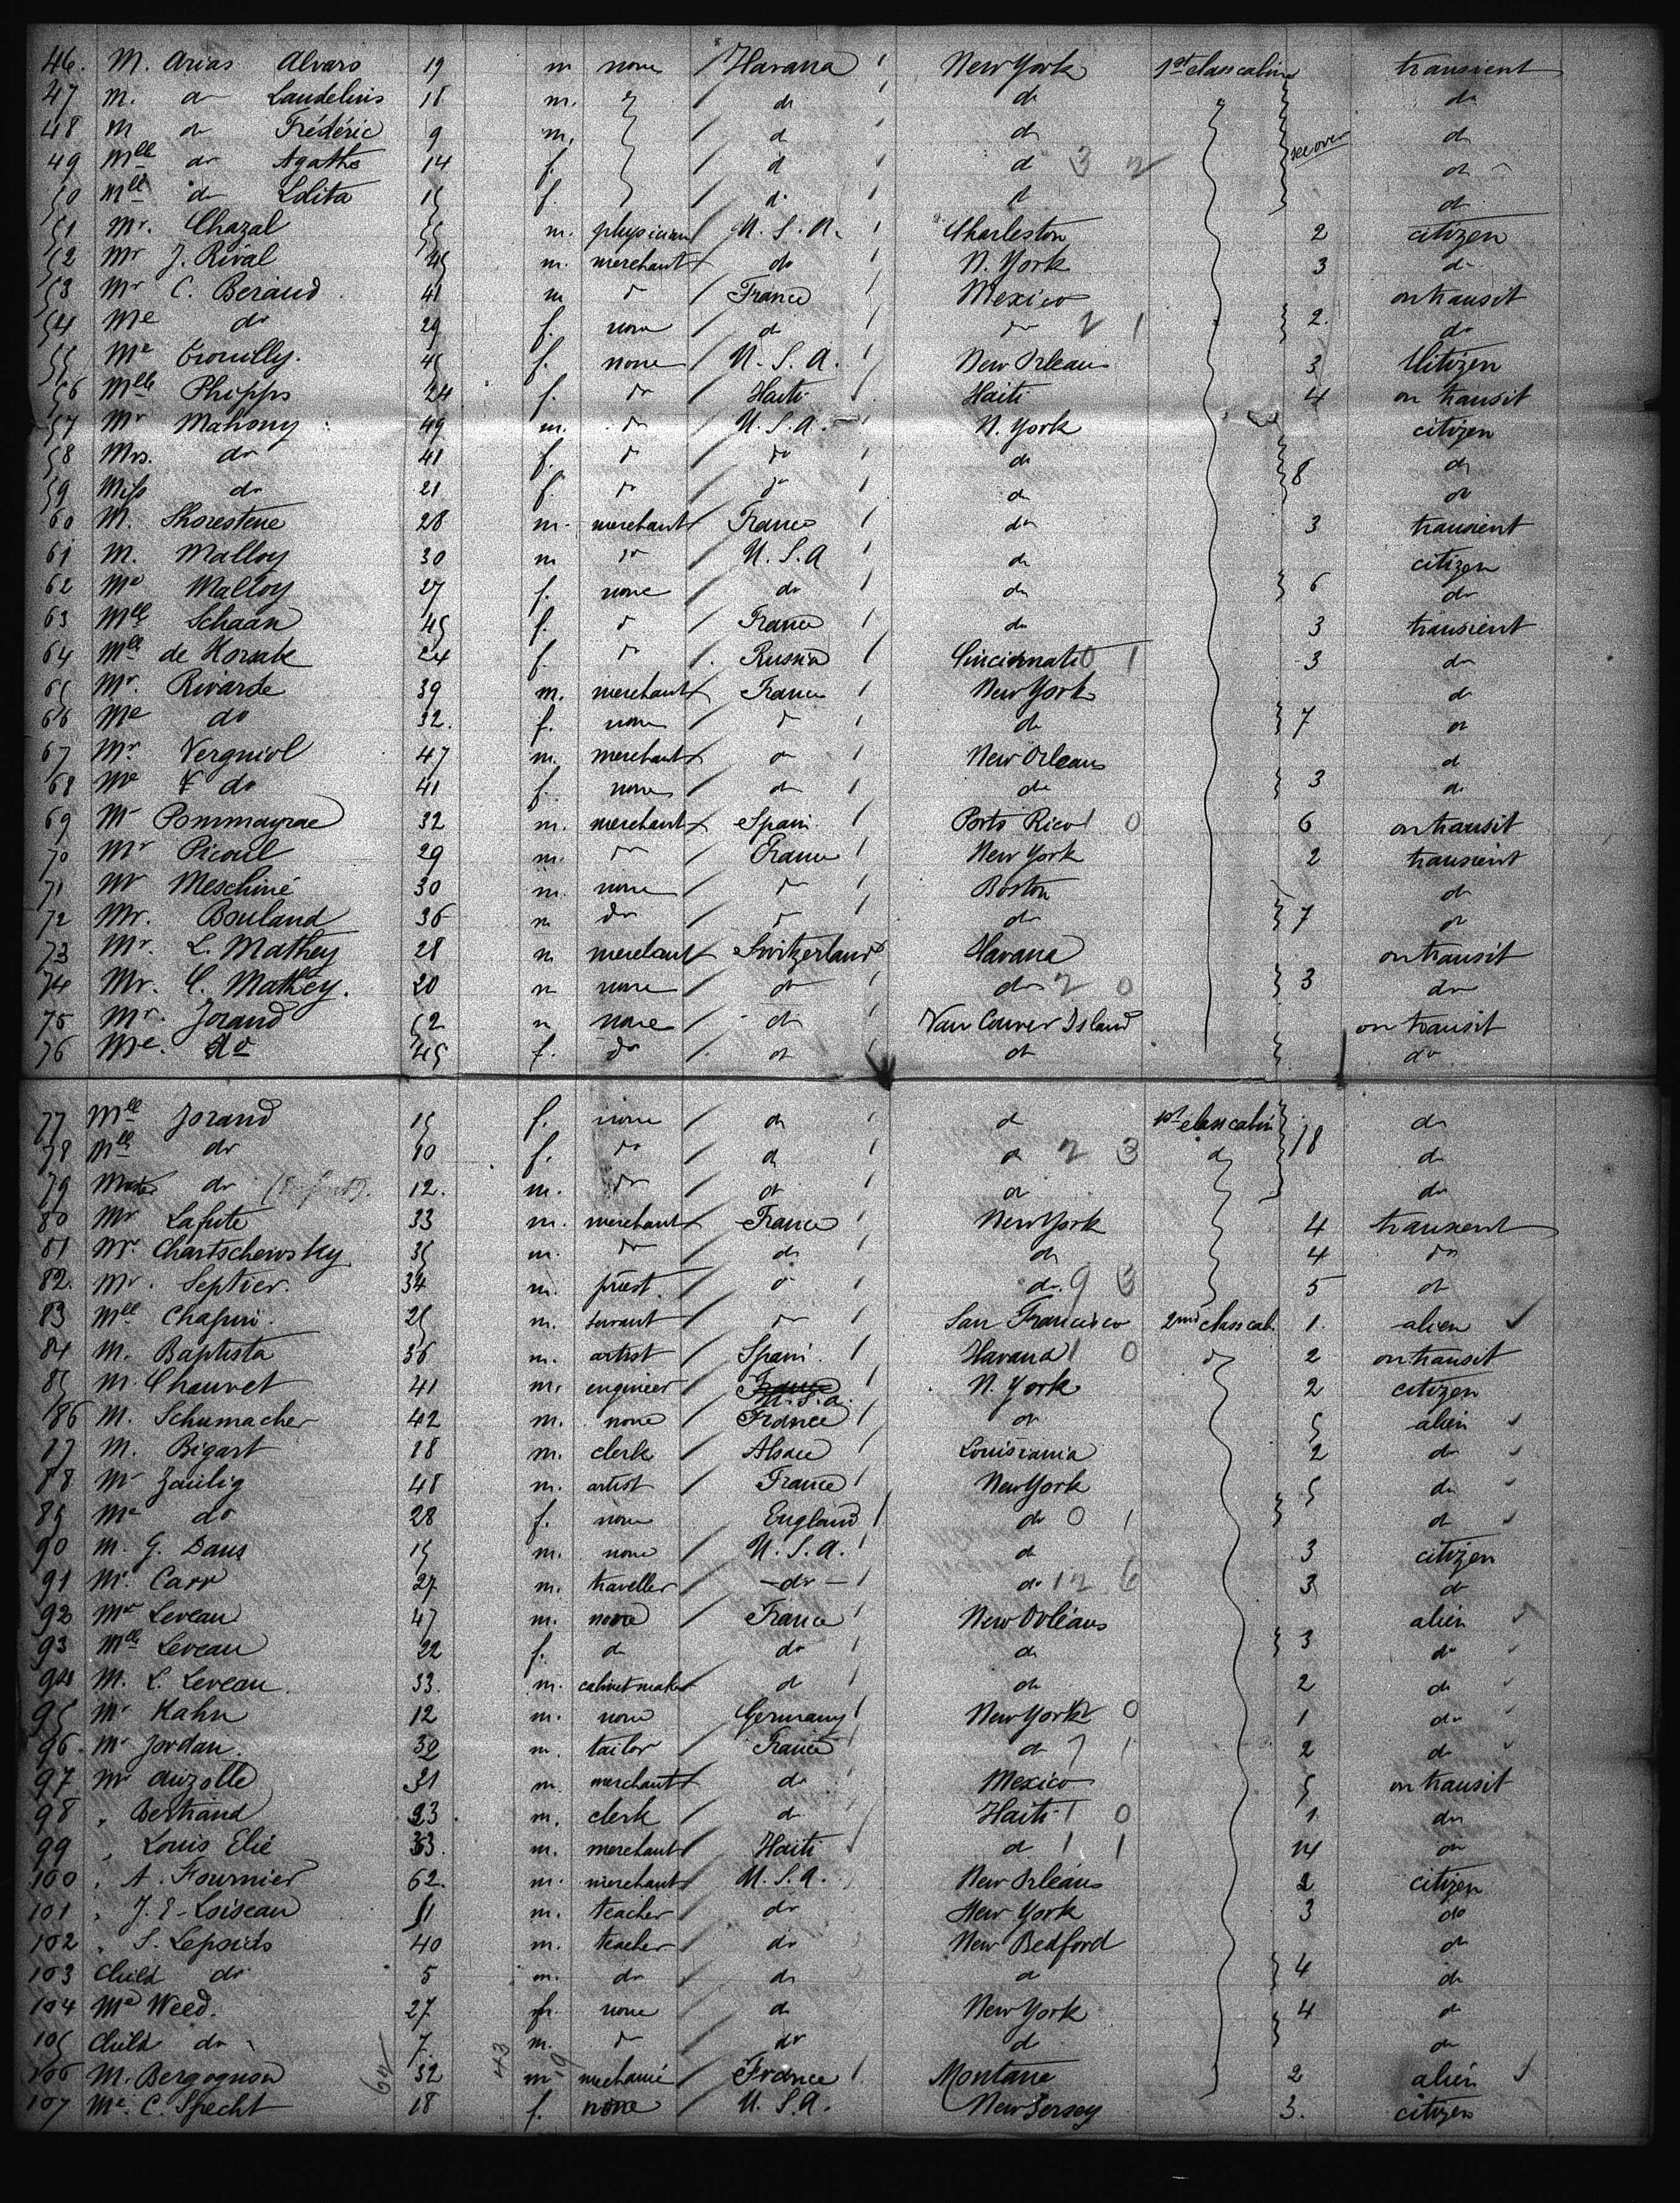 46. M. Arias Alvaro 19 m none Havana New York 1st class cabin transient
47 M. do Laudelins 18 m. do do do
48 M do Frédéric 9 m. d do see over do
49 Mlle do Agathe 14 f. d d 3 2 do
50 Mlle do Lolita 15 f. d. d do
51 Mr. Chazal 55 m. physician U.S.A. Charleston 2 citizen
52 Mr J. Rival 45 m. merchant do N. York 3 do
53 Mr C. Beraud 41 m do France Mexico on transit
54 Me do 29 f. none do do 2 1 2. do
55 Me 45 f. none U.S.A. New Orleans 3 Citizen
56 Mlle Phipps 24 f. do Haiti Haiti 4 on transit
57 Mr Mahony 49 m. do U.S.A. N. York citizen
58 Mrs. do 41 f. do do do 8 do
59 Miss do 21 f. do do do do
60 M. Shorestene 28 m. merchant France do 3 transient
61 M. Malloy 30 m do U.S.A do citizen
62 Me Malloy 27 f. none do do 6 do
63 Mlle Schaan 45 f. d France do 3 transient
64 Mlle de Korsak 24 f. do Russia Cincinnati 0 1 3 do
65 Mr. Rivarde 39 m. merchant France New York do
66 Me do 32. f. none do do 7 do
67 Mr. Vergniol 47 m. merchant do New Orleans d
68 Me do 41 f. none do do 3 do
69 Mr Pommayrac 32 m. merchant Spain Porto Rico 1 0 6 on transit
70 Mr Picoul 29 m. do France New York 2 transient
71 Mr Meschiné 30 m. none do Boston do
72 Mr. Bouland 36 m do do do 7 do
73 Mr. L. Mathey 28 m merchant Switzerland Havana on transit
74 Mr. C. Mathey. 20 m none do do 2 0 3 do
75 Mr. Jorand 52 m none do Van Couver Island on transit
76 Me. do 45 f. do do do do
77 Mlle Jorand 15 f. none do d 1st class cabin do
78 Mlle do 10 f. do do do 2 3 d 18 do
79 Master do 12. m. do do do do
80 Mr Lafute 33 m. merchant France New York 4 transient
81 Mr. Chartschewsky 35 m. do do do 4 do
82. Mr. Septier. 34 m. priest. d do. 9 3 5 do
83 Mlle Chapuis. 25 m. servant do San Francisco 2nd class cab. 1. alien
84 M. Baptista 36 m. artist Spain. Havana 1 0 do 2 on transit
85 M. Chauvet 41 m. engineer France U.S.A. N. York 2 citizen
86 M. Schumacher 42 m. none France do 5 alien
87 M. Bigart 18 m. clerk Alsace Louisiania 2 do
88 Mr Zaulig 48 m. artist France New York 5 do
89 Me do 28 f. none England do 0 1 do
90 M. G. Daus 15 m. none U.S.A. do 3 citizen
91 Mr. Carr 27 m. traveller -do- do 12 6 3 do
92 Mr Leveau 47 m. none France New Orléans alien
93 Mlle Leveau 22 f. do do do 3 do
94 M. L. Leveau. 33. m. cabinet maker d do 2 do
95 Mr Kahn 12 m. none Germany New York 2 0 1 do
96. Mr Jordan. 32 m. tailor France do 7 1 2 do
97 Mr Auzolle 31 m. merchant do Mexico 5 on transit
98 " Bertrand 23. m. clerk d Haiti 1 0 1. do
99 " Louis Elie 33. m. merchant Haiti do 1 1 14 do
100 " A. Fournier 62. m. merchant U.S.A. New Orléans 2 citizen
101 " J. E-Loiseau 51 m. teacher do New York 3 do
102 " S. Lepsids 40 m. teacher do New Bedford do
103 Child do 5 m. do do d 4 do
104 Me Weed. 27 f. none do New York 4 do
105 Child do 7. m. do do d do
106 M. Bergognon 32 m mechanic France Montane 2 alien
107 Me. C. Specht 18 f. none U.S.A. New Jersey 3. citizen
64 43 19